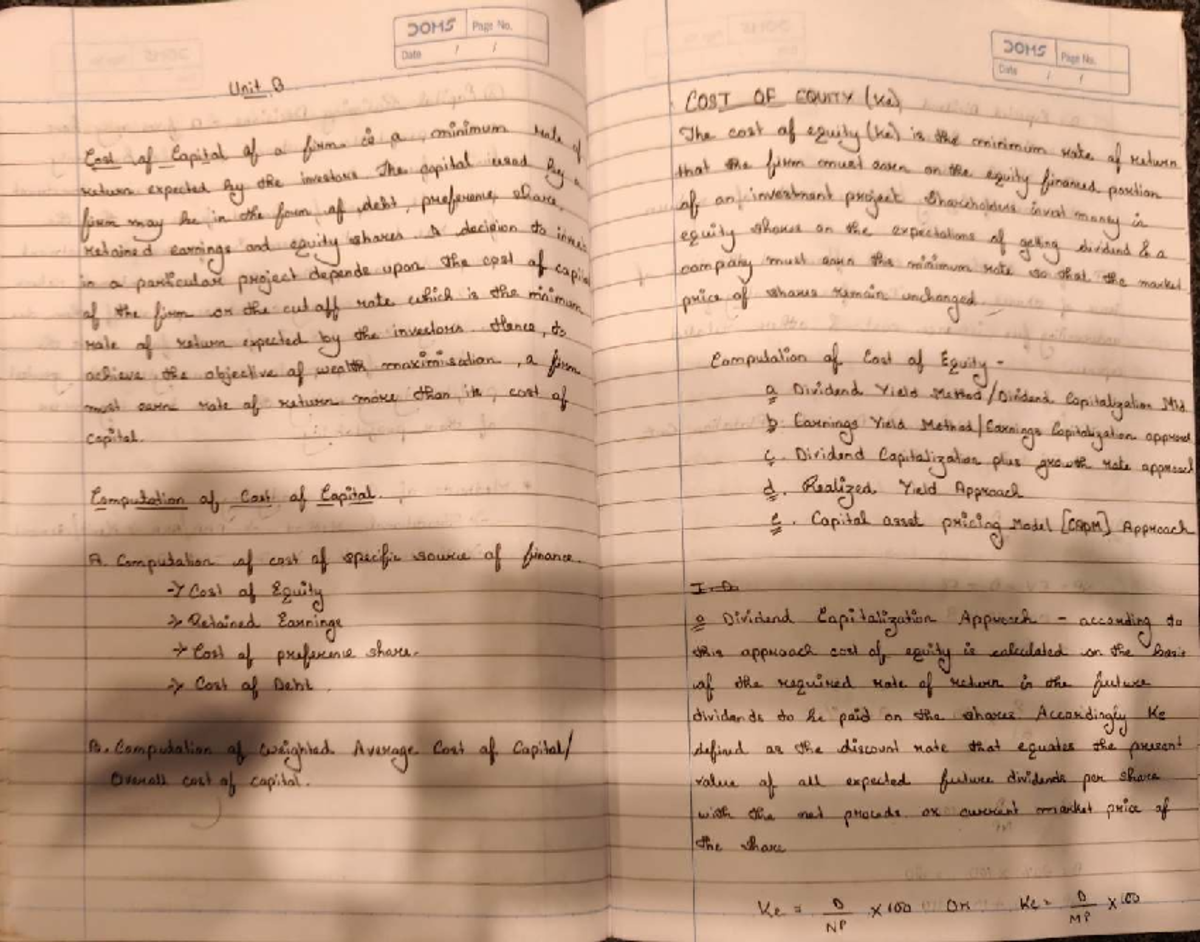 DOMS Page No.
Date / /
Unit B
Cost of Capital of a firm is a minimum rate of
return expected by the investors. The capital used by a
firm may be in the form of debt, preference share,
retained earnings and equity shares. A decision to invest
in a particular project depends upon the cost of capital
of the firm or the cut off rate which is the minimum
rate of return expected by the investors. Hence, to
achieve the objective of wealth maximisation, a firm
must earn rate of return more than its, cost of
capital.
Computation of Cost of Capital.
A. Computation of cost of specific source of finance.
→ Cost of Equity
→ Retained Earnings
→ Cost of preference share.
→ Cost of Debt.
B. Computation of Weighted Average Cost of Capital/
Overall cost of capital.
DOMS Page No.
Date / /
COST OF EQUITY (Ke)
The cost of equity (Ke) is the minimum rate of return
that the firm must earn on the equity financed portion
of an investment project. Shareholders invest money in
equity shares on the expectations of getting dividend & a
company must earn this minimum rate so that the market
price of shares remain unchanged.
Computation of Cost of Equity -
a. Dividend Yield Method/Dividend Capitalization Mtd
b. Earnings Yield Method/Earnings Capitalization approach
c. Dividend Capitalization plus growth rate approach
d. Realized Yield Approach
e. Capital asset pricing Model [CAPM] Approach
a. Dividend Capitalization Approach - according to
this approach cost of equity is calculated on the basis
of the required rate of return in the future
dividends to be paid on the shares. Accordingly Ke
defined as the discount rate that equates the present
value of all expected future dividends per share
with the net proceds or current market price of
the share
Ke = D/NP × 100 Or Ke = D/MP × 100